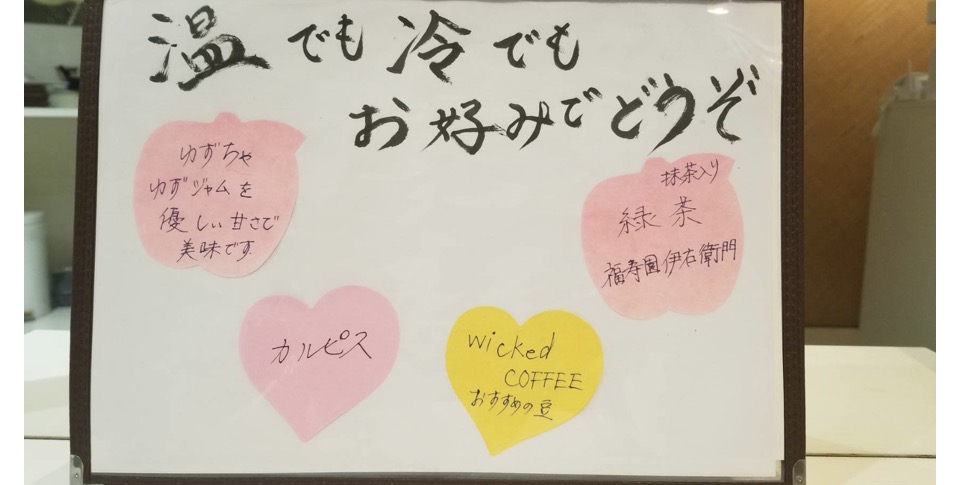 温でも冷でも
お好みでどうぞ
ゆずちゃ
ゆずジャムを
優しい甘さで
美味です
抹茶入り
緑茶
福寿園伊右衛門
カルピス
wicked
COFFEE
おすすめの豆